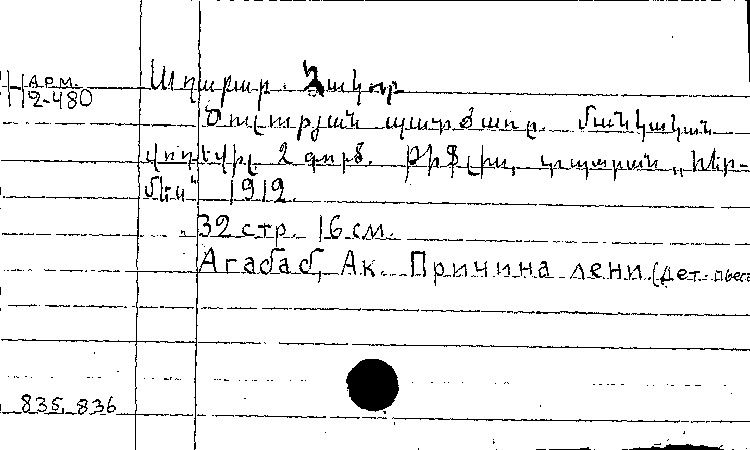 Арм.
Աղաբաբ. Հակոբ
2-480
Ծուլության պատճառը. Մանկական
վոդևիլ 2 գործ. Թիֆլիս, տպարան „Հեր-
մես“ 1912.
32 стр. 16 см.
Агабаб, Ак. Причина лени. (Дет. пьеса
835, 836